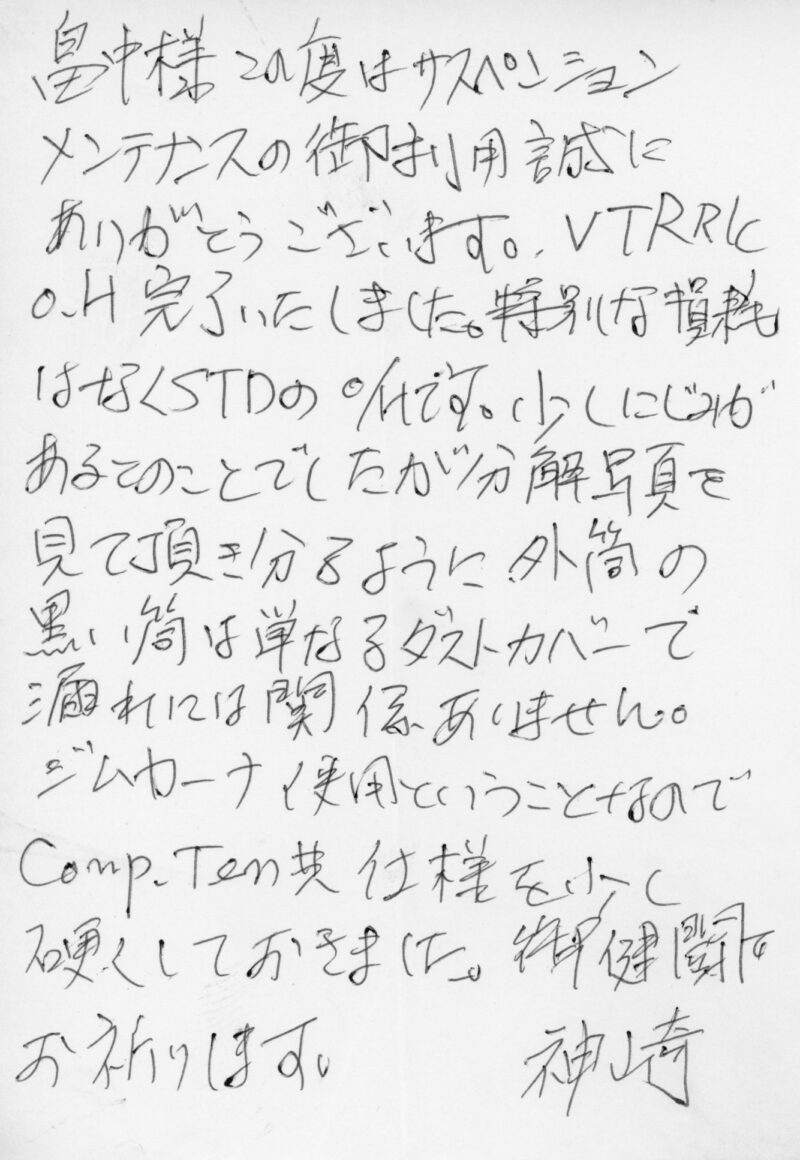 畠中様 この度はサスペンション
メンテナンスの御利用誠に
ありがとうございます。VTRRR
O.H 完了いたしました。特別な損耗
はなくSTDの O/Hです。少しにじみが
あるとのことでしたが分解写真を
見て頂き分るように外筒の
黒い筒は単なるダストカバーで
漏れには関係ありません。
ジムカーナ使用ということなので
Comp. Ten共 仕様を少し
硬くしておきました。御健闘を
お祈りします。 神崎